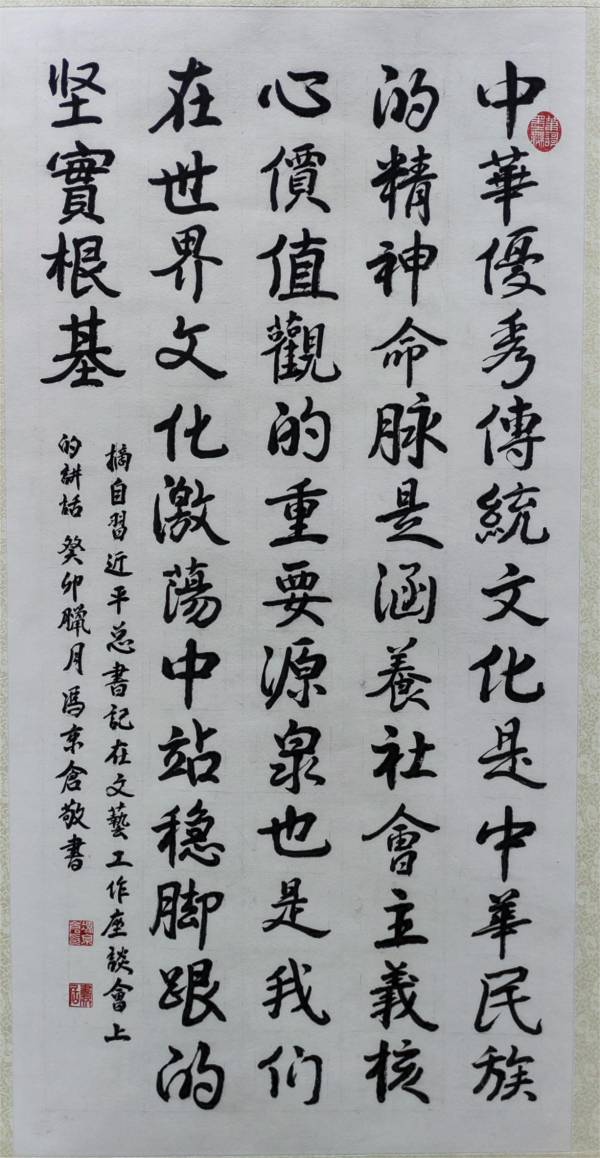 中華優秀傳統文化是中華民族
的精神命脉是涵養社會主義核
心價值觀的重要源泉也是我们
在世界文化激蕩中站穩脚跟的
坚實根基
摘自習近平总書記在文藝工作座談會上
的講話 癸卯臘月馮東倉敬書